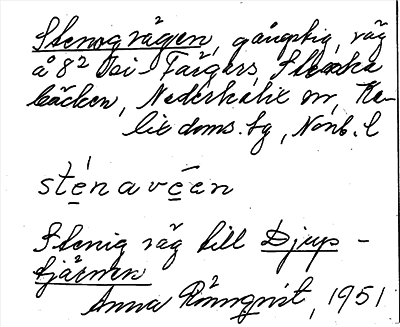 Stenogvägen, gångstig, väg
å 8² Osi-Färgårs, Flenska
bäcken, Nederkalix sn, Ka-
lix doms. tg, Nonb. l
sténavéen
Stenig väg till Djup-
tjärnen
Anna Rönnqvist, 1951